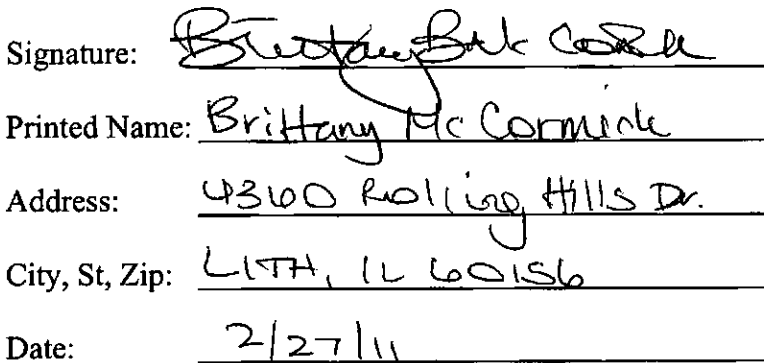 Signature: Brittany
Printed Name: Brittany McCormick
Address: 4360 Rolling Hills Dr.
City, St, Zip: LITH, IL 60156
Date: 2/27/11